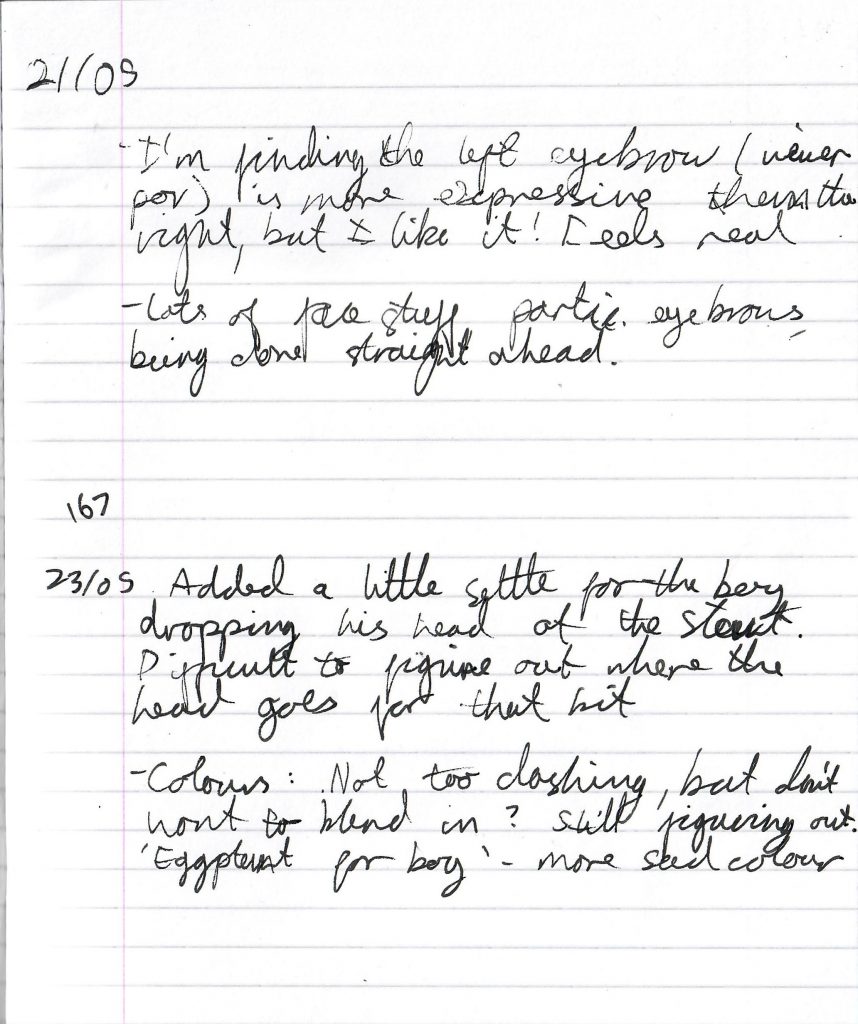 21/05
- I'm finding the left eyebrow (viewer
pov) is more expressive than the
right, but I like it! Feels real
- Lots of face stuff partic. eyebrows
being done straight ahead.
167
23/05 Added a little settle for the boy
dropping his head at the start.
Difficult to figure out where the
head goes for that bit
- Colours: Not too clashing, but don't
want to blend in? Still figuering out.
'Eggplant for boy' - more sad colour